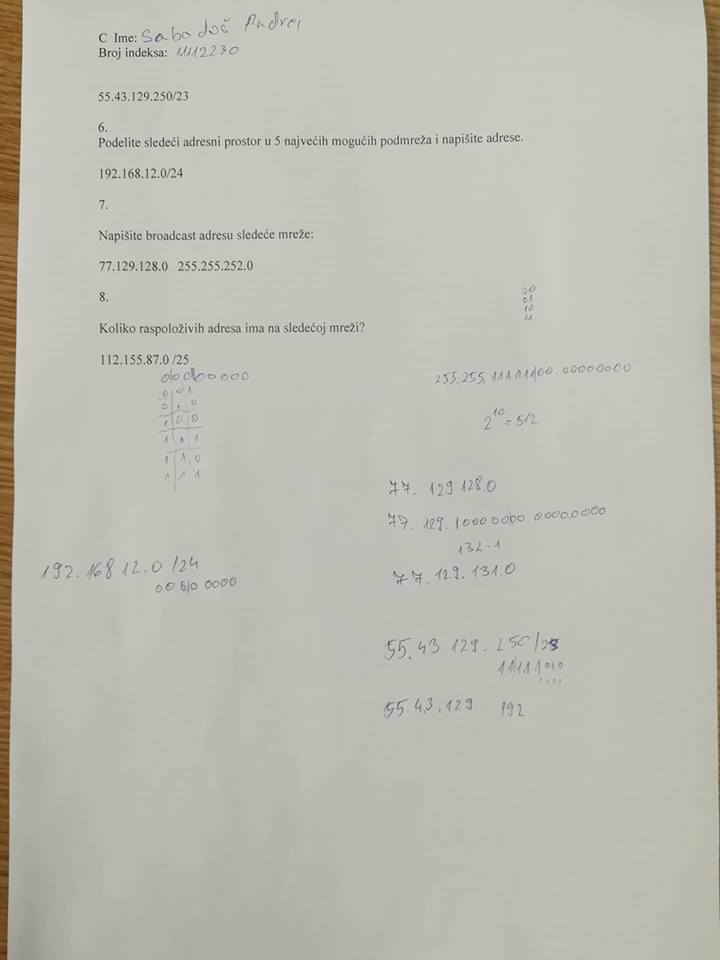 C Ime: Sabadoš Andrej
Broj indeksa: 1112230
55.43.129.250/23
6.
Podelite sledeći adresni prostor u 5 najvećih mogućih podmreža i napišite adrese.
192.168.12.0/24
7.
Napišite broadcast adresu sledeće mreže:
77.129.128.0 255.255.252.0
8.
Koliko raspoloživih adresa ima na sledećoj mreži?
112.155.87.0 /25
00
01
10
11
0 0 1
0 1 0
1 0 0
1 0 1
1 1 0
1 1 1
255.255.11111100.00000000
2^10 = 512
77. 129 128.0
77. 129. 10000000.00000000
132-1
77. 129. 131.0
192. 168. 12. 0 /24
55. 43. 129. 250/
55. 43. 129. 192